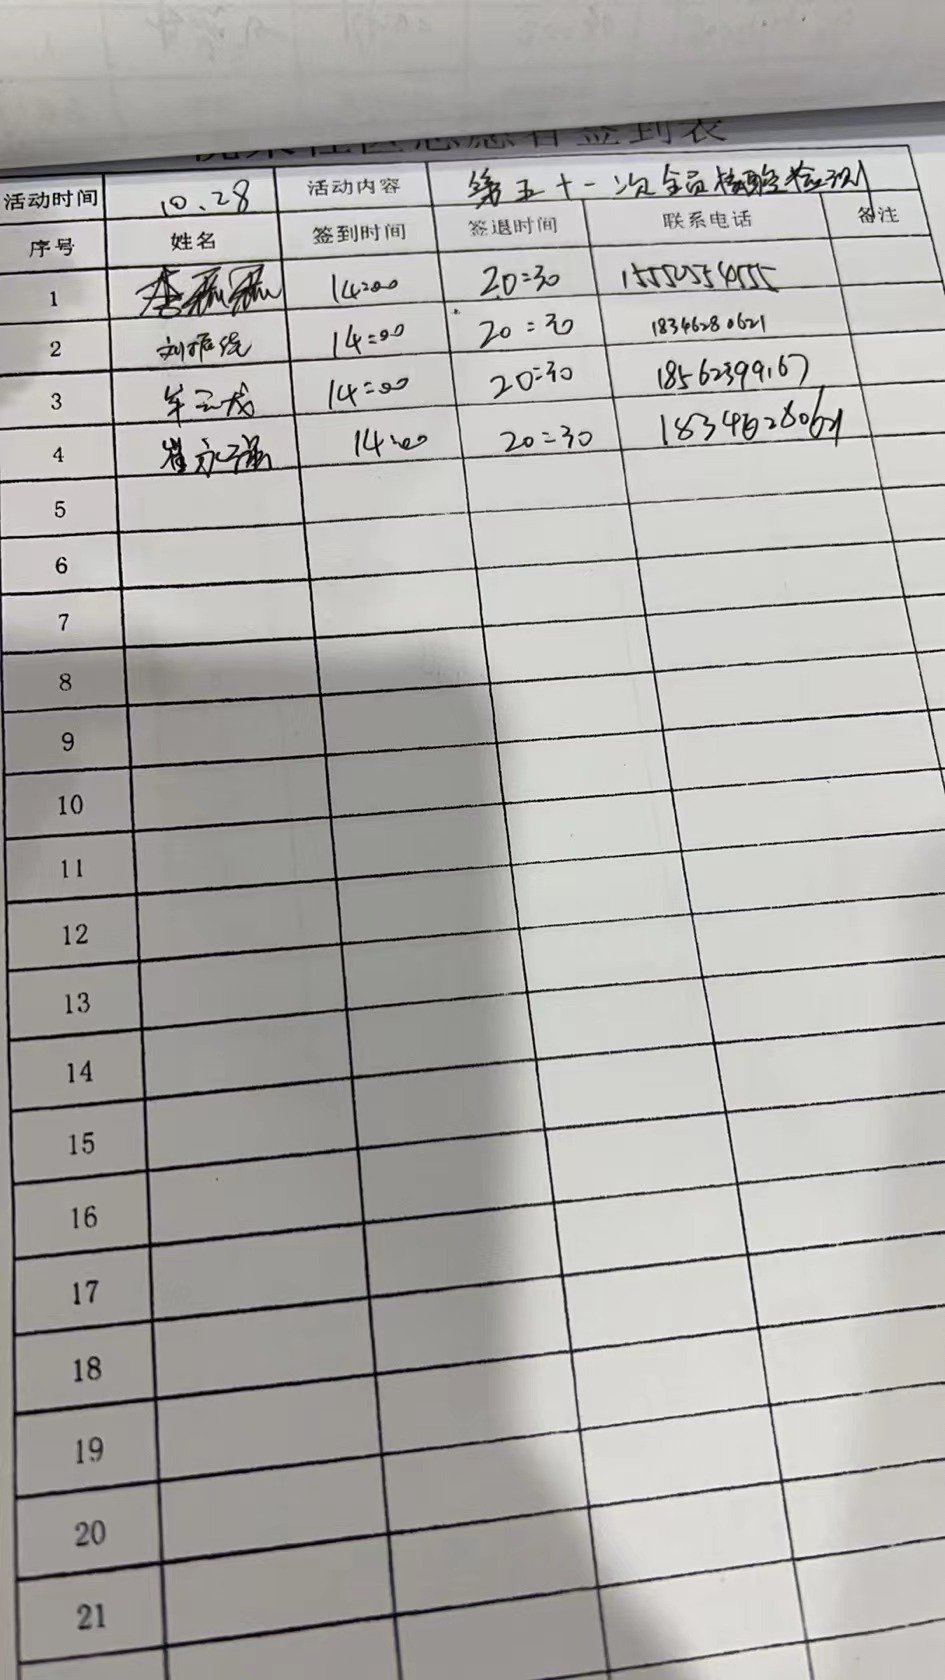 社区志愿者签到表
活动时间 10.28 活动内容 第五十一次全员核酸检测
序号 姓名 签到时间 签退时间 联系电话 备注
1 李磊磊 14:00 20:30 15550554555
2 14:00 20:30 18346280621
3 牟云成 14:00 20:30 18562399167
4 崔永强 14:00 20:30 18346280621
5
6
7
8
9
10
11
12
13
14
15
16
17
18
19
20
21